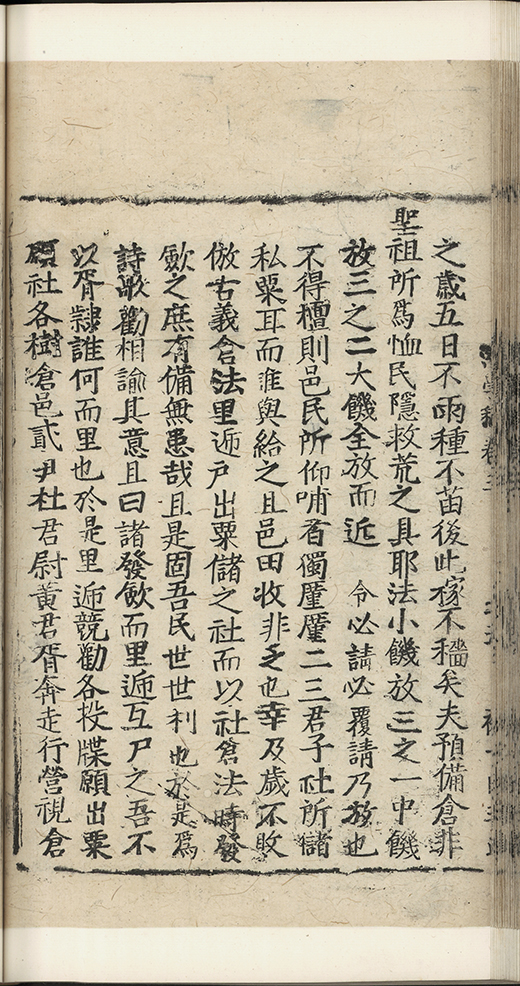 之歲五日不雨種不菑後此稼不穡矣夫預備倉非
聖祖所爲恤民隱救荒之具耶法小饑放三之一中饑
放三之二大饑全放而近 令必請必覆請乃放也
不得擅則邑民所仰哺者獨廑廑二三君子社所儲
私粟耳而誰與給之且邑田收非乏也幸及歲不敗
倣古義倉法里遞户出粟儲之社而以社倉法時發
歛之庶有備無患哉且是固吾民世世利也於是爲
詩歌勸相諭其意且曰諸發歛而里遞互尸之吾不
以胥隸誰何而里也於是里遞競勸各投牒願出粟
願社各樹倉邑貳尹杜君尉黄君胥奔走行營視倉